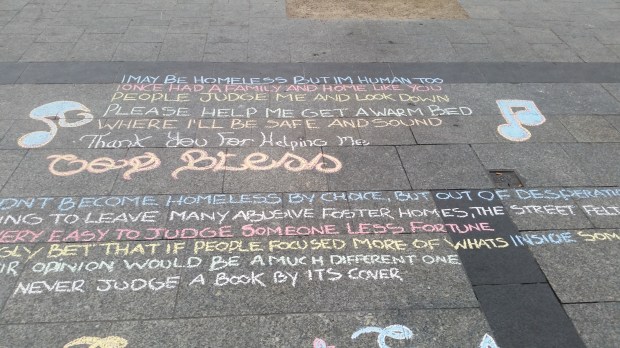 I MAY BE HOMELESS BUT IM HUMAN TOO
I ONCE HAD A FAMILY AND HOME LIKE YOU
PEOPLE JUDGE ME AND LOOK DOWN
PLEASE HELP ME GET A WARM BED
WHERE I'LL BE SAFE AND SOUND
Thank You For Helping Me
God Bless
DNT BECOME HOMELESS BY CHOICE, BUT OUT OF DESPERATIO
ING TO LEAVE MANY ABUSIVE FOSTER HOMES, THE STREET FELT
VERY EASY TO JUDGE SOMEONE LESS FORTUNE
GLY BET THAT IF PEOPLE FOCUSED MORE OF WHATS INSIDE SOM
IR OPINION WOULD BE A MUCH DIFFERENT ONE
NEVER JUDGE A BOOK BY ITS COVER